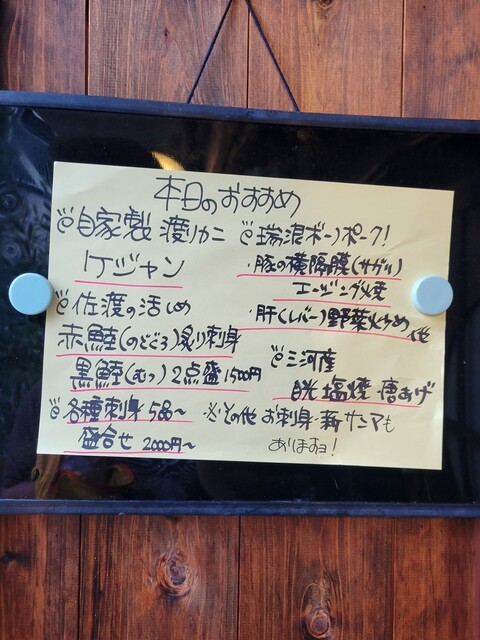 本日のおすすめ
自家製 渡りカニ
ケジャン
佐渡の活〆め
赤鯥(のどぐろ)炙り刺身
黒鯥(むつ)2点盛1500円
各種刺身 5品〜
盛合せ 2000円〜
瑞浪ボーノポーク!
・豚の横隔膜(サガリ)
エージング焼
・肝(レバー)野菜炒め 他
三河産
塩焼 唐あげ
※その他 お刺身・新サンマも
ありまるヨ!